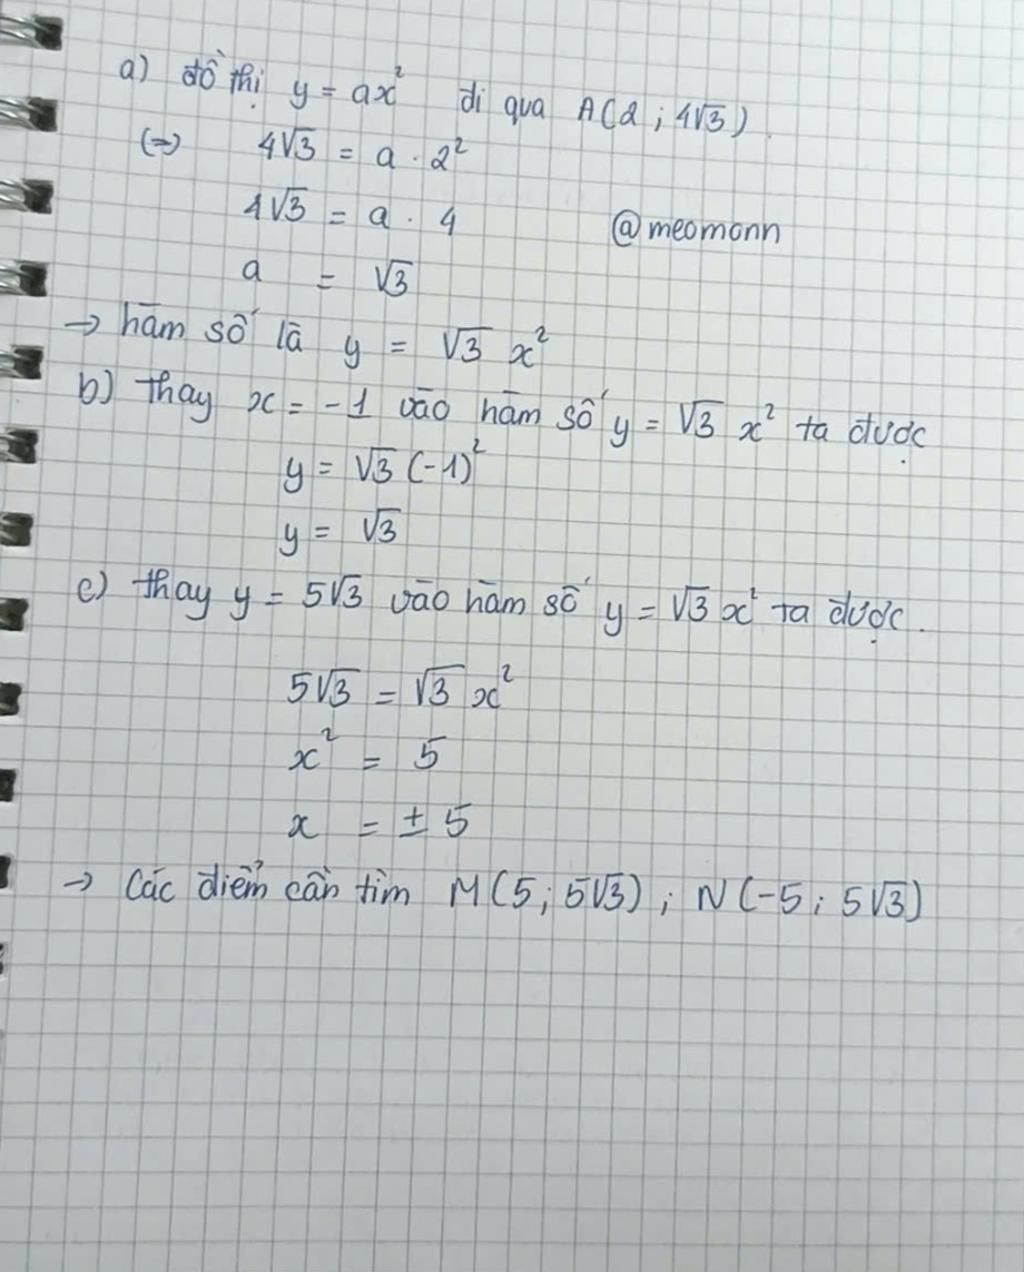 a) đồ thị y = ax² đi qua A(2 ; 4√3).
(=) 4√3 = a . 2²
4√3 = a . 4
@meomonn
a = √3
→ hàm số là y = √3 x²
b) thay x = -1 vào hàm số y = √3 x² ta được
y = √3 (-1)²
y = √3
c) thay y = 5√3 vào hàm số y = √3 x² ta được.
5√3 = √3 x²
x² = 5
x = ± 5
→ Các điểm cần tìm M(5 ; 5√3) ; N(-5 ; 5√3)